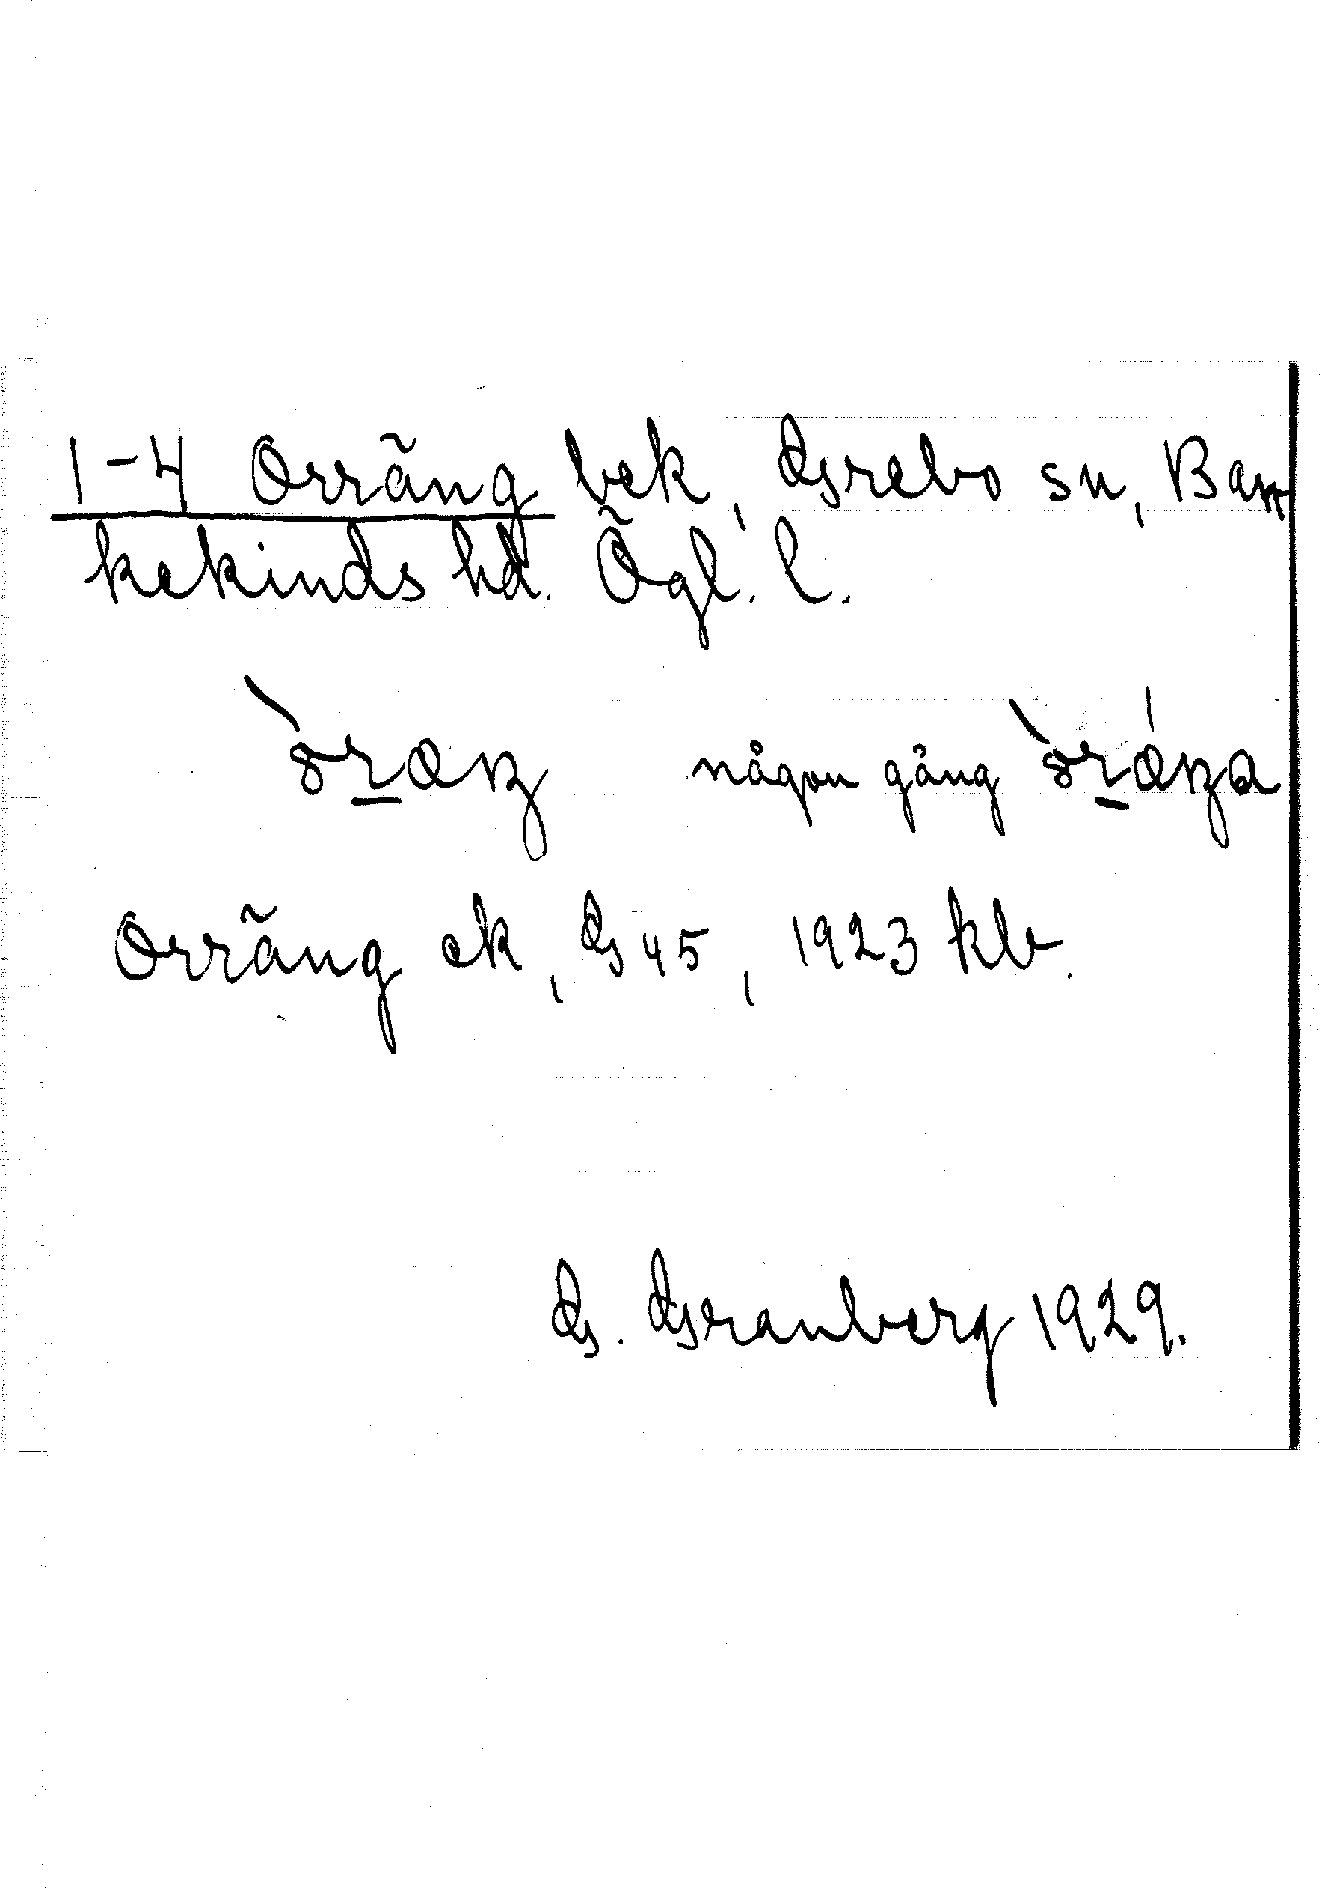 1-4 Orräng bek, Grebo sn, Ban
kekinds hd. Ögl. l.
någon gång
Orräng ek, G 45, 1923 klv.
G. Granberg 1929.